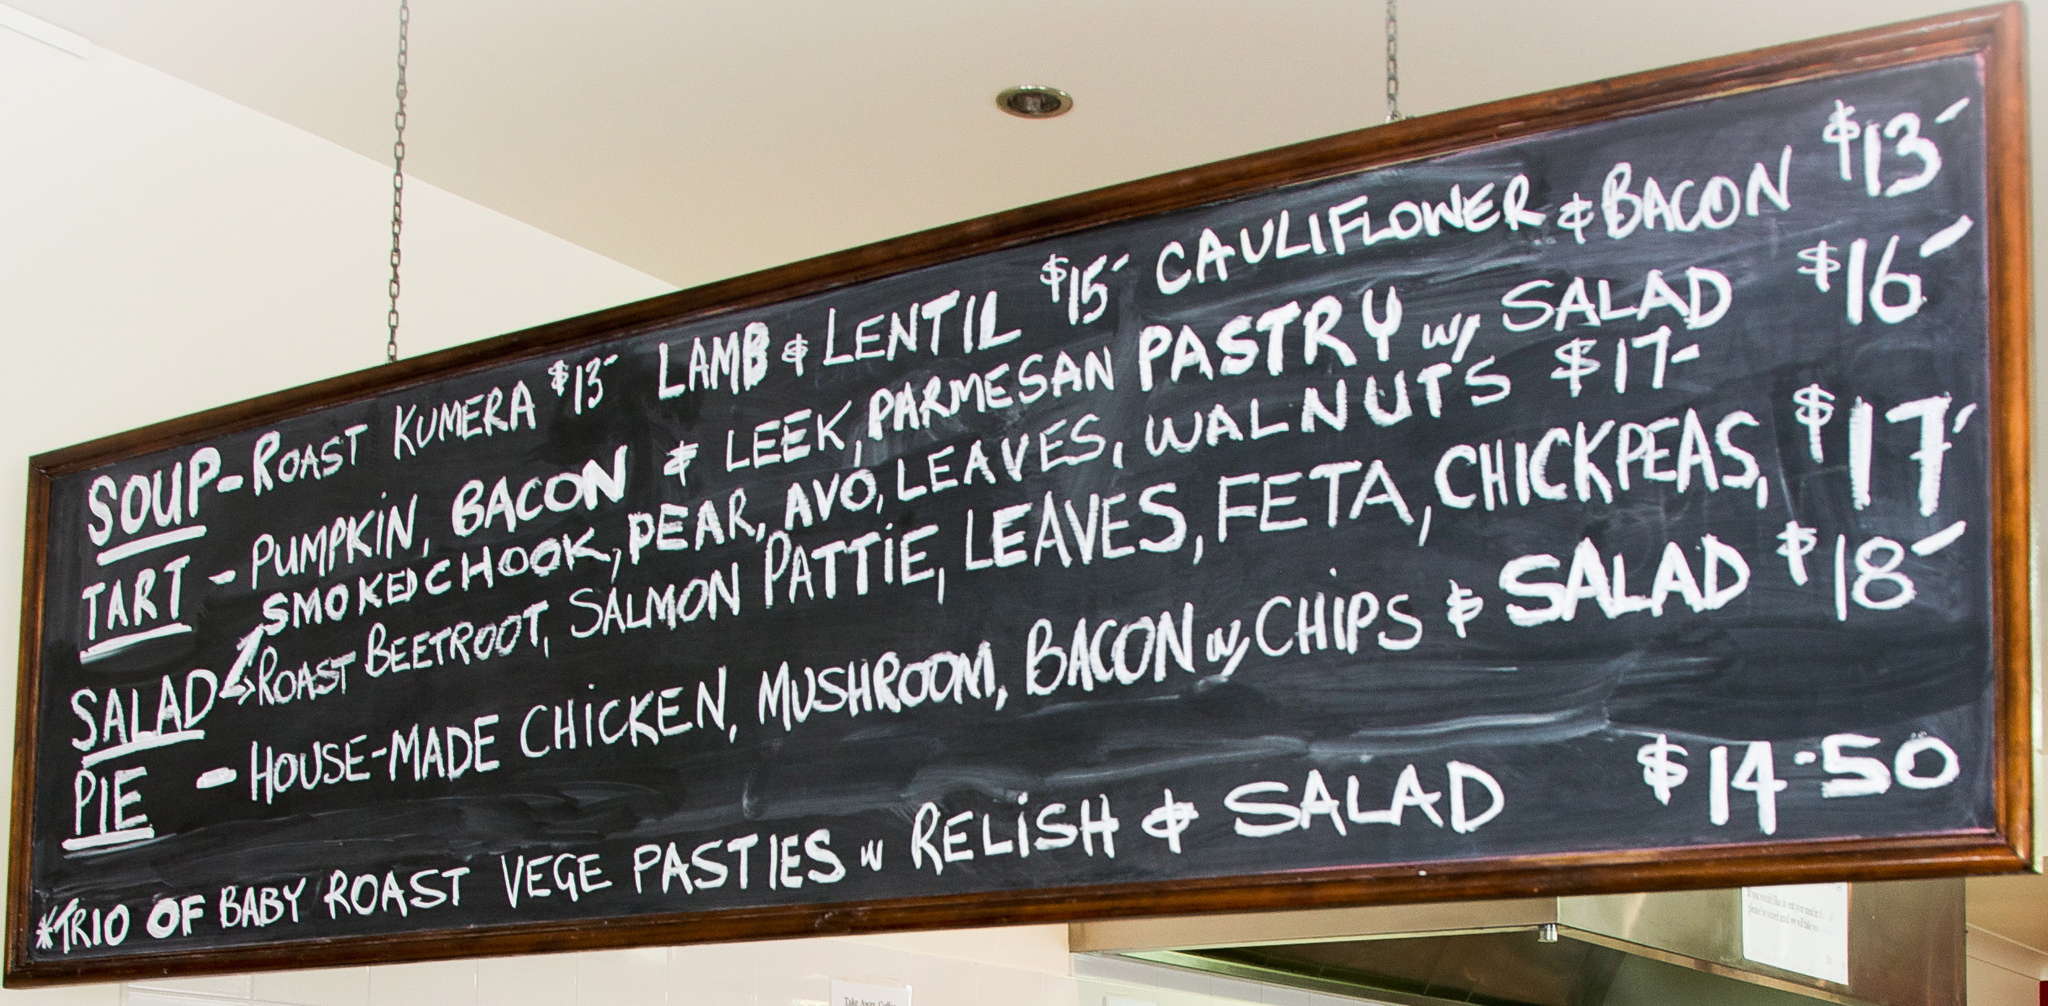 SOUP - ROAST KUMERA $13- LAMB & LENTIL $15- CAULIFLOWER & BACON $13-
TART - PUMPKIN, BACON & LEEK, PARMESAN PASTRY w/ SALAD $16-
SMOKED CHOOK, PEAR, AVO, LEAVES, WALNUTS $17-
SALAD ROAST BEETROOT, SALMON PATTIE, LEAVES, FETA, CHICKPEAS, $17-
PIE - HOUSE-MADE CHICKEN, MUSHROOM, BACON w/ CHIPS & SALAD $18-
*TRIO OF BABY ROAST VEGE PASTIES w RELISH & SALAD $14-50
Take Away